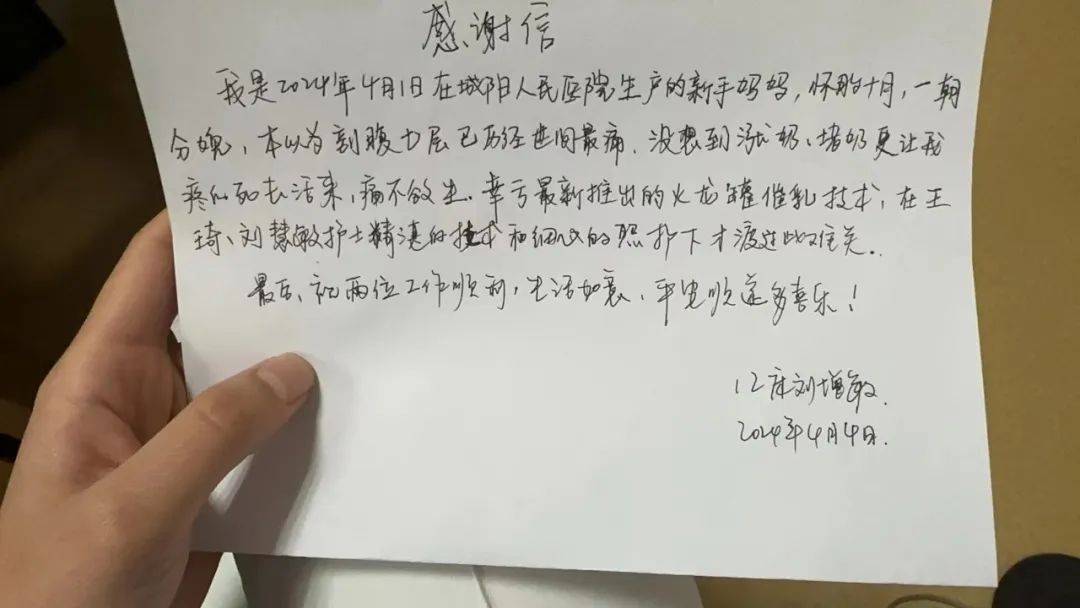 感谢信
我是2024年4月1日在城阳人民医院生产的新手妈妈，怀胎十月，一朝
分娩，本以为剖腹七层已历经世间最痛，没想到涨奶、堵奶更让我
疼的死去活来，痛不欲生。幸亏最新推出的火龙罐催乳技术，在王
琦、刘慧敏护士精湛的技术和细心的照护下才渡过此难关。
最后，祝两位工作顺利，生活如意，平安顺遂多喜乐！
12床刘增敏
2024年4月4日